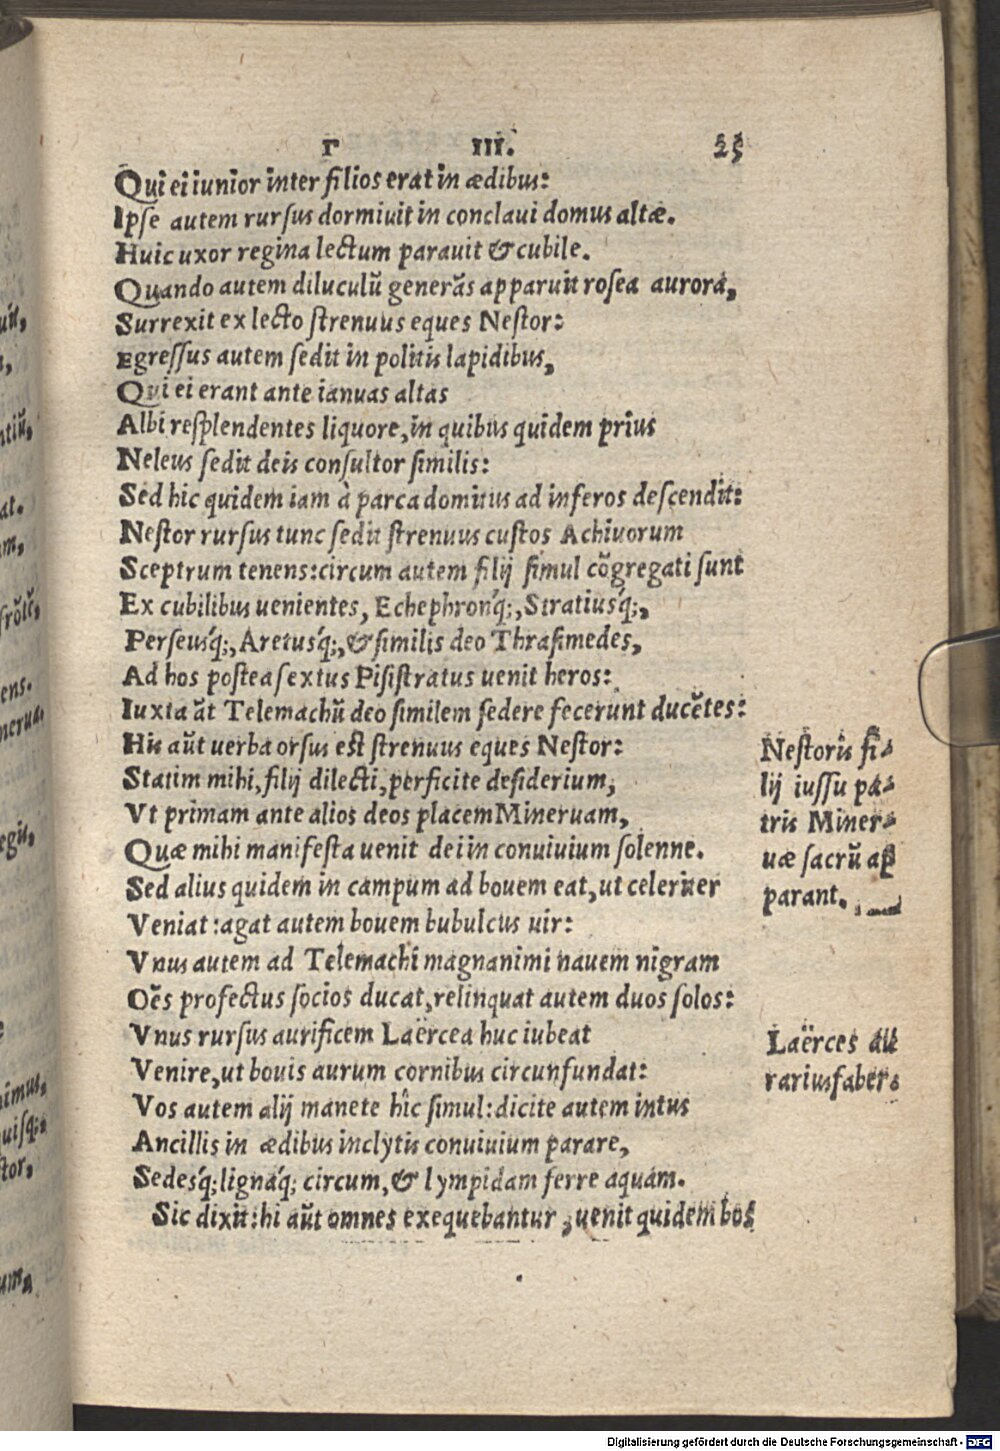 Γ III. 25
Qui ei iunior inter filios erat in ædibus:
Ipse autem rursus dormiuit in conclaui domus altæ.
Huic uxor regina lectum parauit & cubile.
Quando autem diluculũ generãs apparuit rosea aurora,
Surrexit ex lecto strenuus eques Nestor:
Egressus autem sedit in politis lapidibus,
Qui ei erant ante ianuas altas
Albi resplendentes liquore, in quibus quidem prius
Neleus sedit deis consultor similis:
Sed hic quidem iam à parca domitus ad inferos descendit:
Nestor rursus tunc sedit strenuus custos Achiuorum
Sceptrum tenens: circum autem filij simul cõgregati sunt
Ex cubilibus uenientes, Echephronq́;, Stratiusq́;,
Perseusq́;, Aretusq́;, & similis deo Thrasimedes,
Ad hos postea sextus Pisistratus uenit heros:
Iuxta ãt Telemachũ deo similem sedere fecerunt ducẽtes:
His aũt uerba orsus est strenuus eques Nestor:
Statim mihi, filij dilecti, perficite desiderium,
Vt primam ante alios deos placem Mineruam,
Quæ mihi manifesta uenit dei in conuiuium solenne.
Sed alius quidem in campum ad bouem eat, ut celeriter
Veniat: agat autem bouem bubulcus uir:
Vnus autem ad Telemachi magnanimi nauem nigram
Oẽs profectus socios ducat, relinquat autem duos solos:
Vnus rursus aurificem Laërcea huc iubeat
Venire, ut bouis aurum cornibus circunfundat:
Vos autem alij manete hîc simul: dicite autem intus
Ancillis in ædibus inclytis conuiuium parare,
Sedesq́; lignaq́; circum, & lympidam ferre aquam.
Sic dixit: hi aũt omnes exequebantur, uenit quidem bos
Nestoris fi-
lij iussu pa-
tris Miner-
uæ sacrũ ap
parant.
Laërces au
rarius faber.
Digitalisierung gefördert durch die Deutsche Forschungsgemeinschaft - DFG